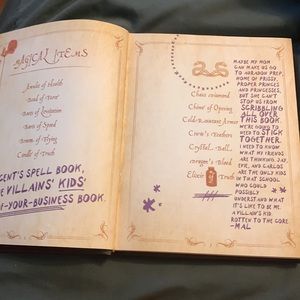 MAGICAL ITEMS
Amulet of Health
Bead of Force
Boots of Levitation
Boots of Speed
Broom of Flying
Candle of Truth
CENT'S SPELL BOOK,
E VILLAINS' KIDS'
F-YOUR-BUSINESS BOOK.
Chaos Diamond
Chime of Opening
Cold-Resisting Armor
Crow's Feathers
Crystal Ball
Dragon's Blood
Elixir of Truth
MAYBE MY MOM
CAN MAKE US GO
TO AURADON PREP,
HOME OF PRISSY,
PROPER PRINCES
AND PRINCESSES,
BUT SHE CAN'T
STOP US FROM
SCRIBBLING
ALL OVER
THIS BOOK.
WE'RE GOING
TO NEED TO
STICK
TOGETHER.
I NEED TO KNOW
WHAT MY FRIENDS
ARE THINKING. JAY,
EVIE, AND CARLOS
ARE THE ONLY KIDS
IN THAT SCHOOL
WHO COULD
POSSIBLY
UNDERSTAND WHAT
IT'S LIKE TO BE ME:
A VILLAIN'S KID.
ROTTEN TO THE CORE.
-MAL